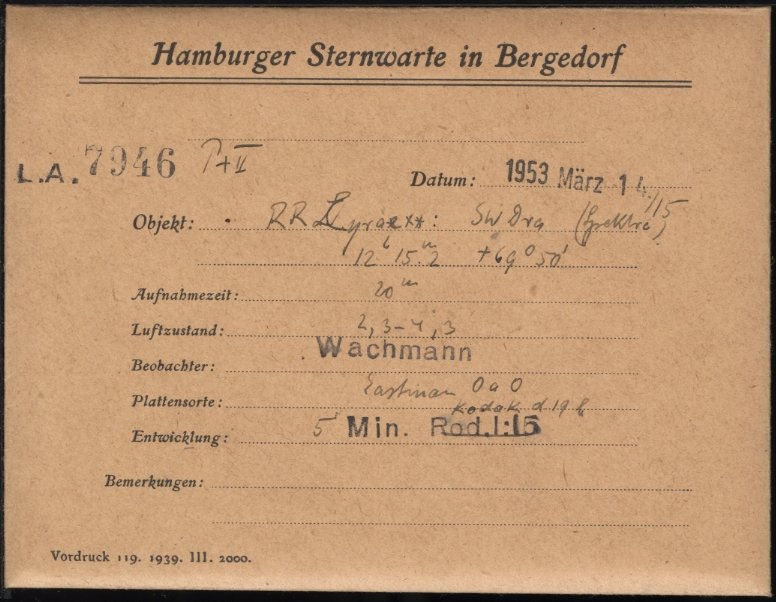 Hamburger Sternwarte in Bergedorf
L.A. 7946 P+II
Datum: 1953 März 14/15
Objekt: RR Lyrae **: SW Dra (Spektra)
12h 15m2 +69° 50'
Aufnahmezeit: 20m
Luftzustand: 2,3-4,3
Beobachter: Wachmann
Plattensorte: Eastman OaO
Entwicklung: 5 Min. Rod.1:15 Kodak d19b
Bemerkungen:
Vordruck 119. 1939. III. 2000.